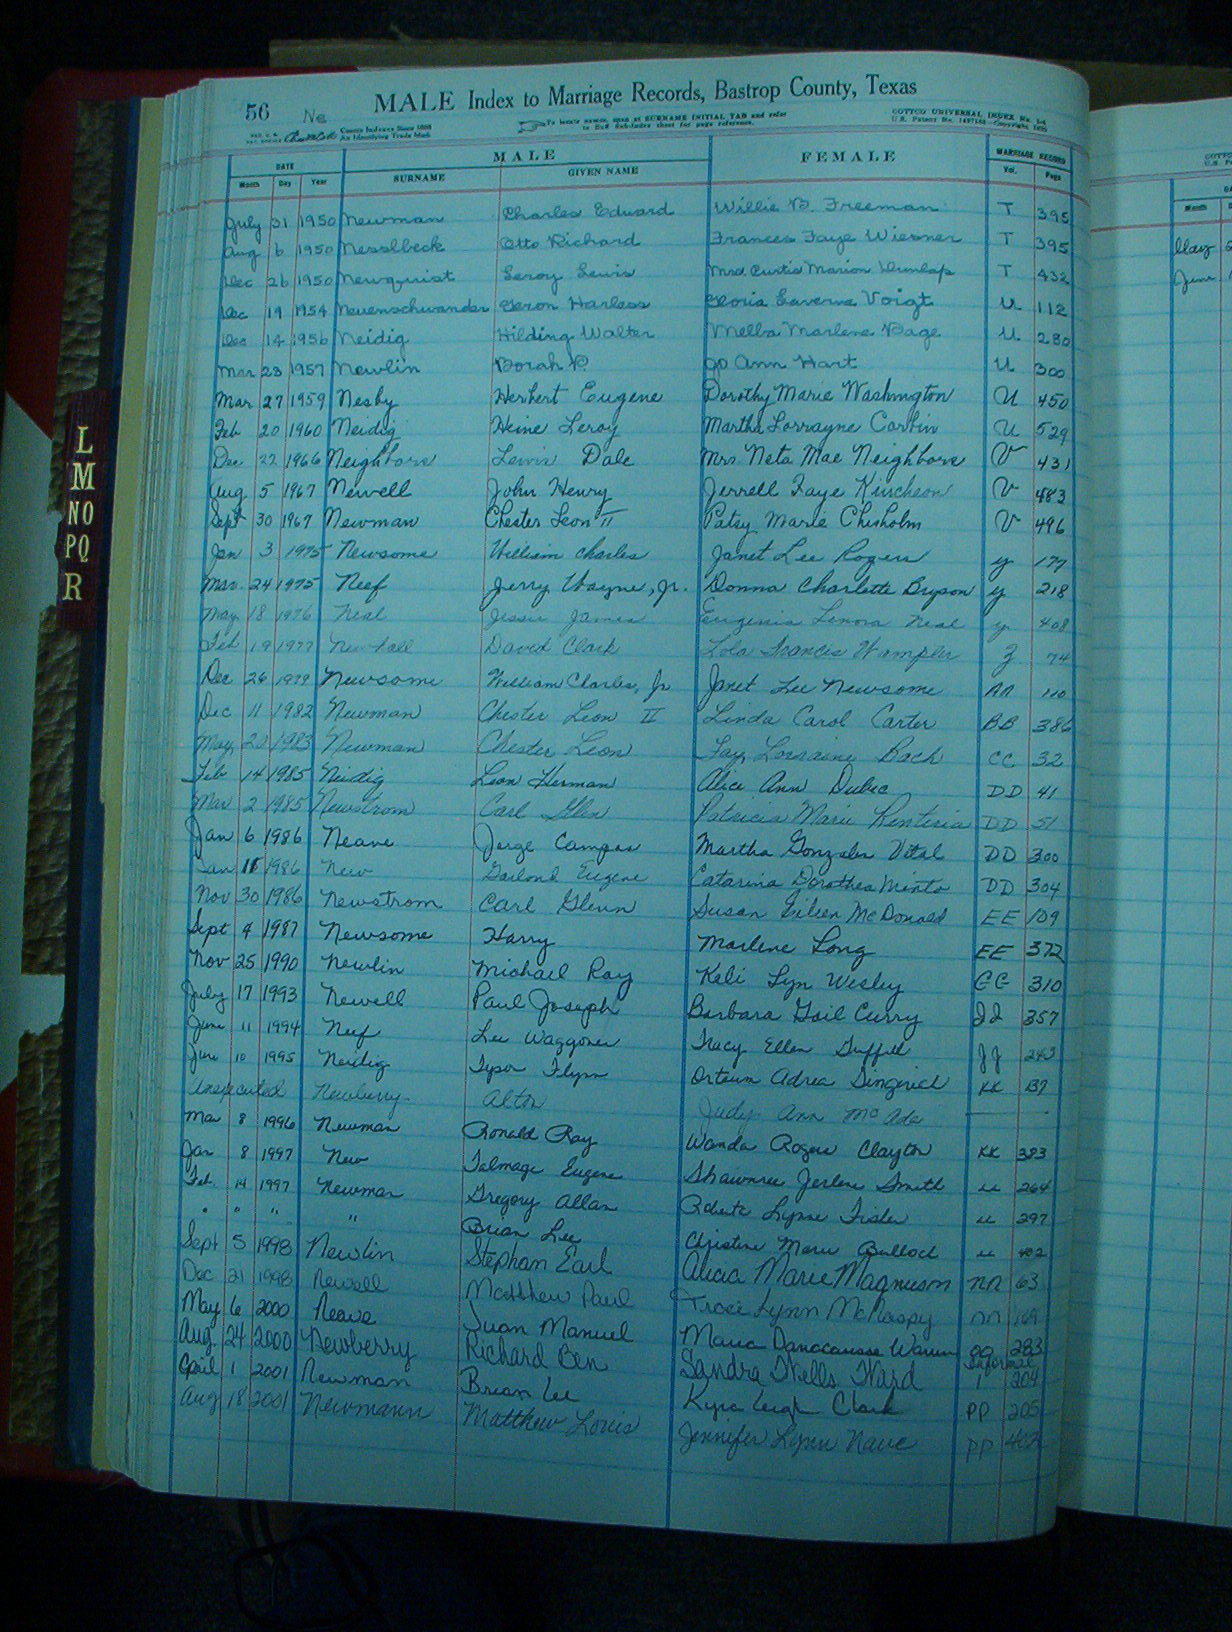 56 Ne MALE Index to Marriage Records, Bastrop County, Texas
County Indexes Since 1888
An Identifying Trade Mark
To locate names, open at SURNAME INITIAL TAB and refer
to Buff Sub-Index sheet for page reference.
COTTCO UNIVERSAL INDEX No.
U.S. Patent No. Copyright,
DATE MALE FEMALE MARRIAGE RECORD
Month Day Year SURNAME GIVEN NAME Vol. Page
July 31 1950 Newman Charles Edward Willie B. Freeman T 395
Aug 6 1950 Nesslbeck Otto Richard Frances Faye Wiesner T 395
Dec 26 1950 Newquist Leroy Lewis Mrs. Curtis Marion Dunlap T 432
Dec 19 1954 Neuenschwander Geron Harless Gloria Laverne Voigt U 112
Dec 14 1956 Neidig Hilding Walter Melba Marlene Page U 280
Mar 23 1957 Newlin Borah P. Jo Ann Hart U 300
Mar 27 1959 Nesby Herbert Eugene Dorothy Marie Washington U 450
Feb 20 1960 Neidig Heine Leroy Martha Lorrayne Corbin U 529
Dec 22 1966 Neighbors Lewis Dale Mrs Neta Mae Neighbors V 431
Aug 5 1967 Newell John Henry Jerrell Faye Kincheon V 483
Sept 30 1967 Newman Chester Leon II Patsy Marie Chisholm V 496
Jan 3 1975 Newsome William Charles Janet Lee Rogers Y 177
Mar. 24 1975 Neef Jerry Wayne, Jr. Donna Charlotte Bryson Y 218
May 18 1976 Neal Jessie James Eugenia Lenora Neal Y 408
Feb 19 1977 Newhall David Clark Lola Frances Wampler Z 74
Dec 26 1979 Newsome William Charles, Jr Janet Lee Newsome AA 110
Dec 11 1982 Newman Chester Leon II Linda Carol Carter BB 386
May 20 1983 Newman Chester Leon Fay Lorraine Bach CC 32
Feb 14 1985 Neidig Leon Herman Alice Ann Dubec DD 41
Mar 2 1985 Newstrom Carl Glen Patricia Marie Renteria DD 51
Jan 6 1986 Neave Jorge Campos Martha Gonzales Vital DD 300
Jan 11 1986 New Garlond Eugene Catarina Dorothea Minto DD 304
Nov 30 1986 Newstrom Carl Glenn Susan Eileen McDonald EE 109
Sept 4 1987 Newsome Harry Marlene Long EE 372
Nov 25 1990 Newlin Michael Ray Keli Lyn Wesley GG 310
July 17 1993 Newell Paul Joseph Barbara Gail Curry 357
June 11 1994 Neef Lee Waggoner Tracy Ellen JJ 243
June 10 1995 Neidig Tyson Flynn Adrea KK 137
Unexecuted Newberry Alton Judy Ann McAda
Mar 8 1996 Newman Ronald Ray Wanda Rogers Clayton KK 383
Jan 8 1997 New Talmage Eugene Shawnree Jerlene Smith LL 264
Feb. 14 1997 Newman Gregory Allan Roberta Lynne Fisher LL 297
" " " " Brian Lee Christine Marie Bullock LL
Sept 5 1998 Newlin Stephan Earl Alicia Marie Magnuson NN 63
Dec 21 1998 Newell Matthew Paul Traci Lynn NN 169
May 6 2000 Neave Juan Manuel Maria Warren OO 283
Aug. 24 2000 Newberry Richard Ben Sandra Wells Ward Informal 1 204
April 1 2001 Newman Brian Lee Kyra Leigh Clark PP 205
Aug 18 2001 Newmann Matthew Louis Jennifer Lynn Nave PP 402
L
M
NO
PQ
R
Month
May
June